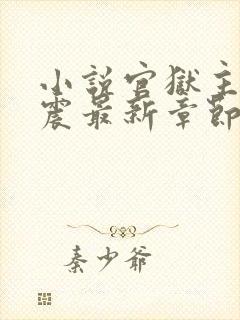 小説官獄主
震最新章節
秦少爺